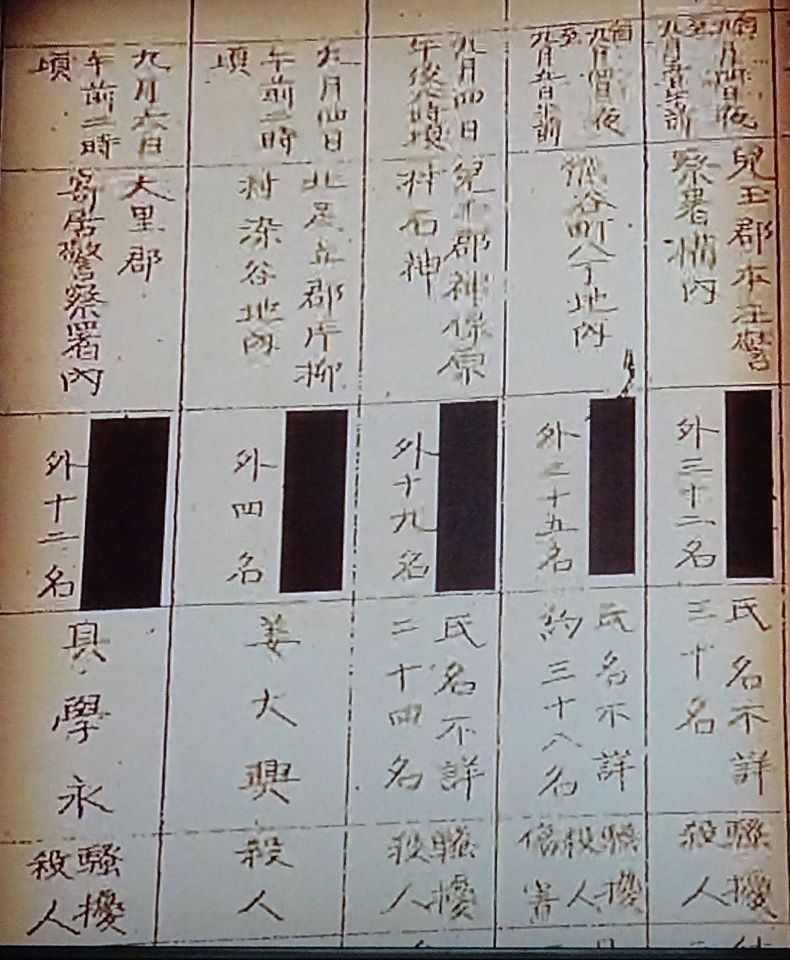 自九月四日夜
至九月
兒玉郡本庄警
察署構内
外三十二名
氏名不詳
三十名
騷擾
殺人
自九月四日夜
至九月
熊谷町八丁地内
十五名
氏名不詳
約三十八名
騷擾
殺人
傷害
九月四日
午後八時頃
兒玉郡神保原
村石神
外十九名
氏名不詳
二十四名
騷擾
殺人
九月四日
午前二時
頃
北足立郡片柳
村染谷地内
外四名
姜大興
殺人
九月六日
午前二時
頃
大里郡
寄居警察署内
外十二名
具學永
騷擾
殺人